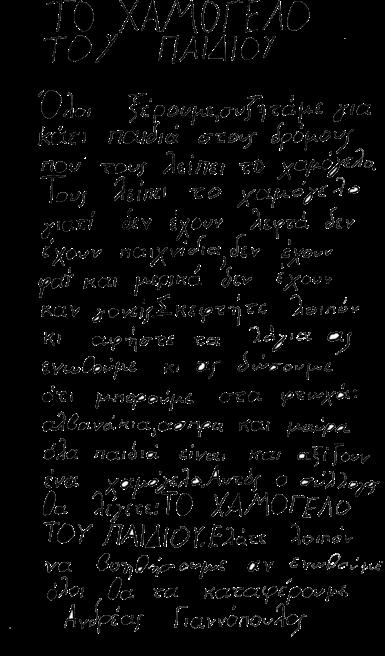 ΤΟ ΧΑΜΟΓΕΛΟ
ΤΟΥ ΠΑΙΔΙΟΥ
Όλοι ξέρουμε, συζητάμε για
κάτι παιδιά στους δρόμους
που τους λείπει το χαμόγελο
Τους λείπει το χαμόγελο
γιατί δεν έχουν λεφτά δεν
έχουν παιχνίδια, δεν έχουν
φαΐ και μερικά δεν έχουν
καν γονείς. Σκεφτήτε λοιπόν
κι αφήστε τα λόγια ας
ενωθούμε κι ας δώσουμε
ότι μπορούμε στα φτωχά:
αλβανάκια, ασπρα και μαύρα
όλα παιδιά είναι και αξίζουν
ένα χαμόγελο. Αυτός ο σύλλογος
θα λέγεται ΤΟ ΧΑΜΟΓΕΛΟ
ΤΟΥ ΠΑΙΔΙΟΥ. Ελάτε λοιπόν
να βοηθήσουμε αν ενωθούμε
όλοι θα τα καταφέρουμε
Ανδρέας Γιαννόπουλος